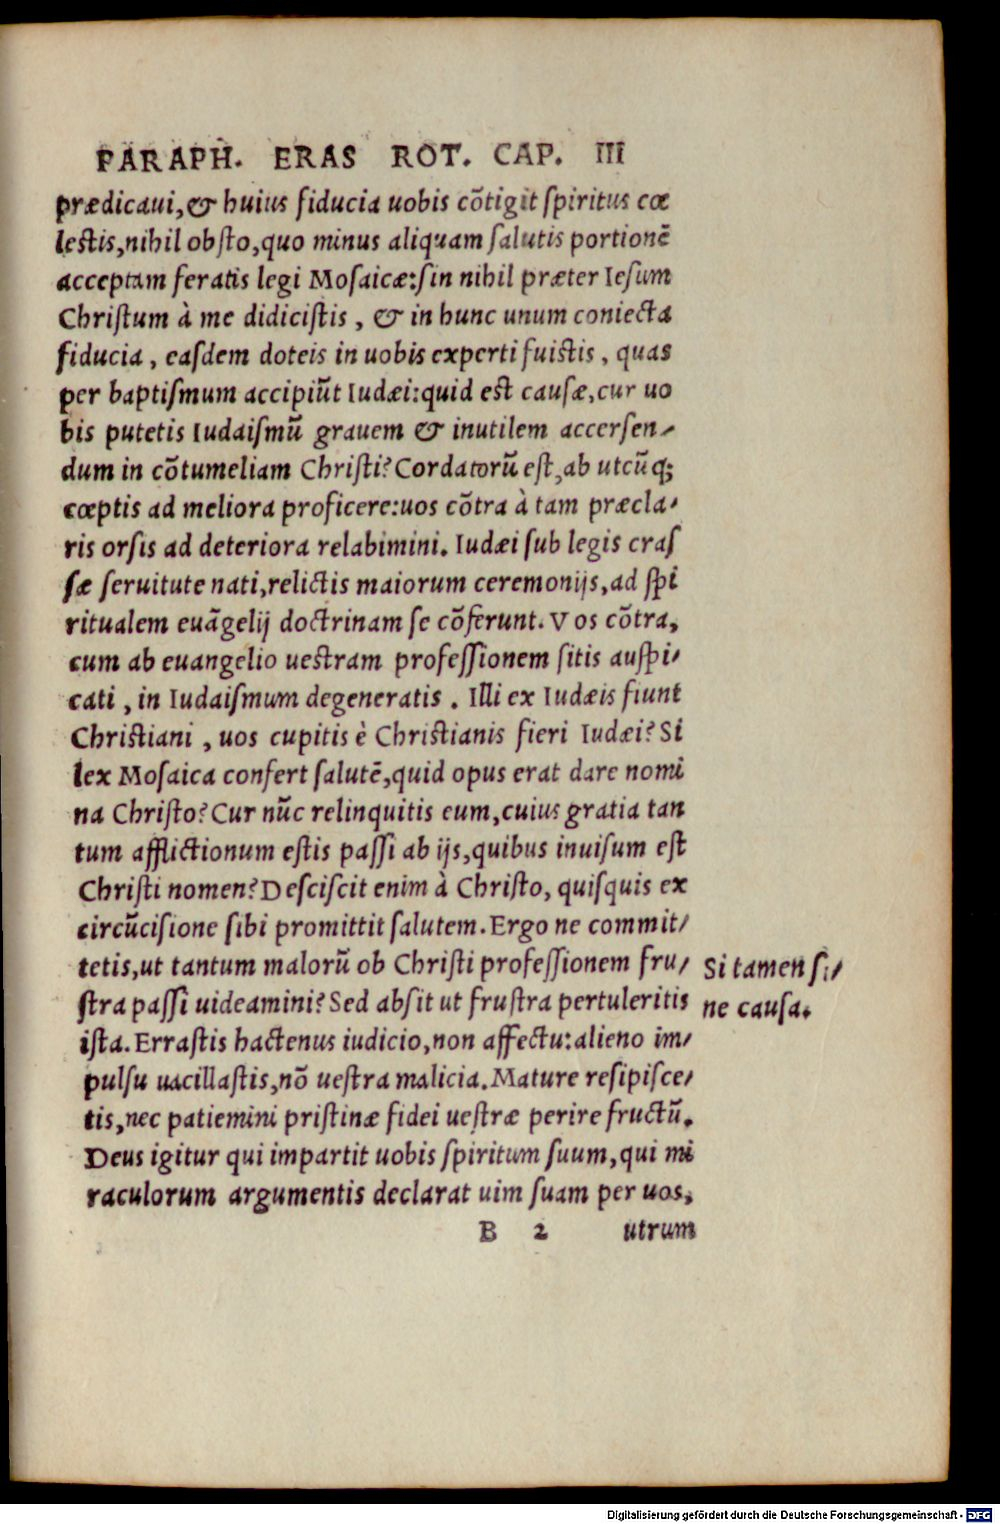 PARAPH. ERAS ROT. CAP. III
prædicaui,& huius fiducia uobis cõtigit ſpiritus cœ
leſtis,nihil obſto,quo minus aliquam ſalutis portionẽ
acceptam feratis legi Moſaicæ:ſin nihil præter Ieſum
Chriſtum à me didiciſtis , & in hunc unum coniecta
fiducia , eaſdem doteis in uobis experti fuiſtis , quas
per baptiſmum accipiũt Iudæi:quid eſt cauſæ,cur uo
bis putetis Iudaiſmũ grauem & inutilem accerſen⸗
dum in cõtumeliam Chriſti? Cordatorũ eſt,ab utcũq;
cœptis ad meliora proficere:uos cõtra à tam præcla⸗
ris orſis ad deteriora relabimini. Iudæi ſub legis craſ
ſæ ſeruitute nati,relictis maiorum ceremonijs,ad ſpi
ritualem euãgelij doctrinam ſe cõferunt. Vos cõtra,
cum ab euangelio ueſtram profeſſionem ſitis auſpi⸗
cati , in Iudaiſmum degeneratis . Illi ex Iudæis fiunt
Chriſtiani , uos cupitis è Chriſtianis fieri Iudæi? Si
lex Moſaica confert ſalutẽ,quid opus erat dare nomi
na Chriſto? Cur nũc relinquitis eum,cuius gratia tan
tum afflictionum eſtis paſſi ab ijs,quibus inuiſum eſt
Chriſti nomen? Deſciſcit enim à Chriſto, quiſquis ex
circũciſione ſibi promittit ſalutem. Ergo ne commit⸗
tetis,ut tantum malorũ ob Chriſti profeſſionem fru⸗
ſtra paſſi uideamini? Sed abſit ut fruſtra pertuleritis
iſta. Erraſtis hactenus iudicio,non affectu:alieno im⸗
pulſu uacillaſtis,nõ ueſtra malicia. Mature reſipiſce⸗
tis,nec patiemini priſtinæ fidei ueſtræ perire fructũ.
Deus igitur qui impartit uobis ſpiritum ſuum,qui mi
raculorum argumentis declarat uim ſuam per uos,
Si tamen ſi⸗
ne cauſa.
B 2 utrum
Digitalisierung gefördert durch die Deutsche Forschungsgemeinschaft - DFG